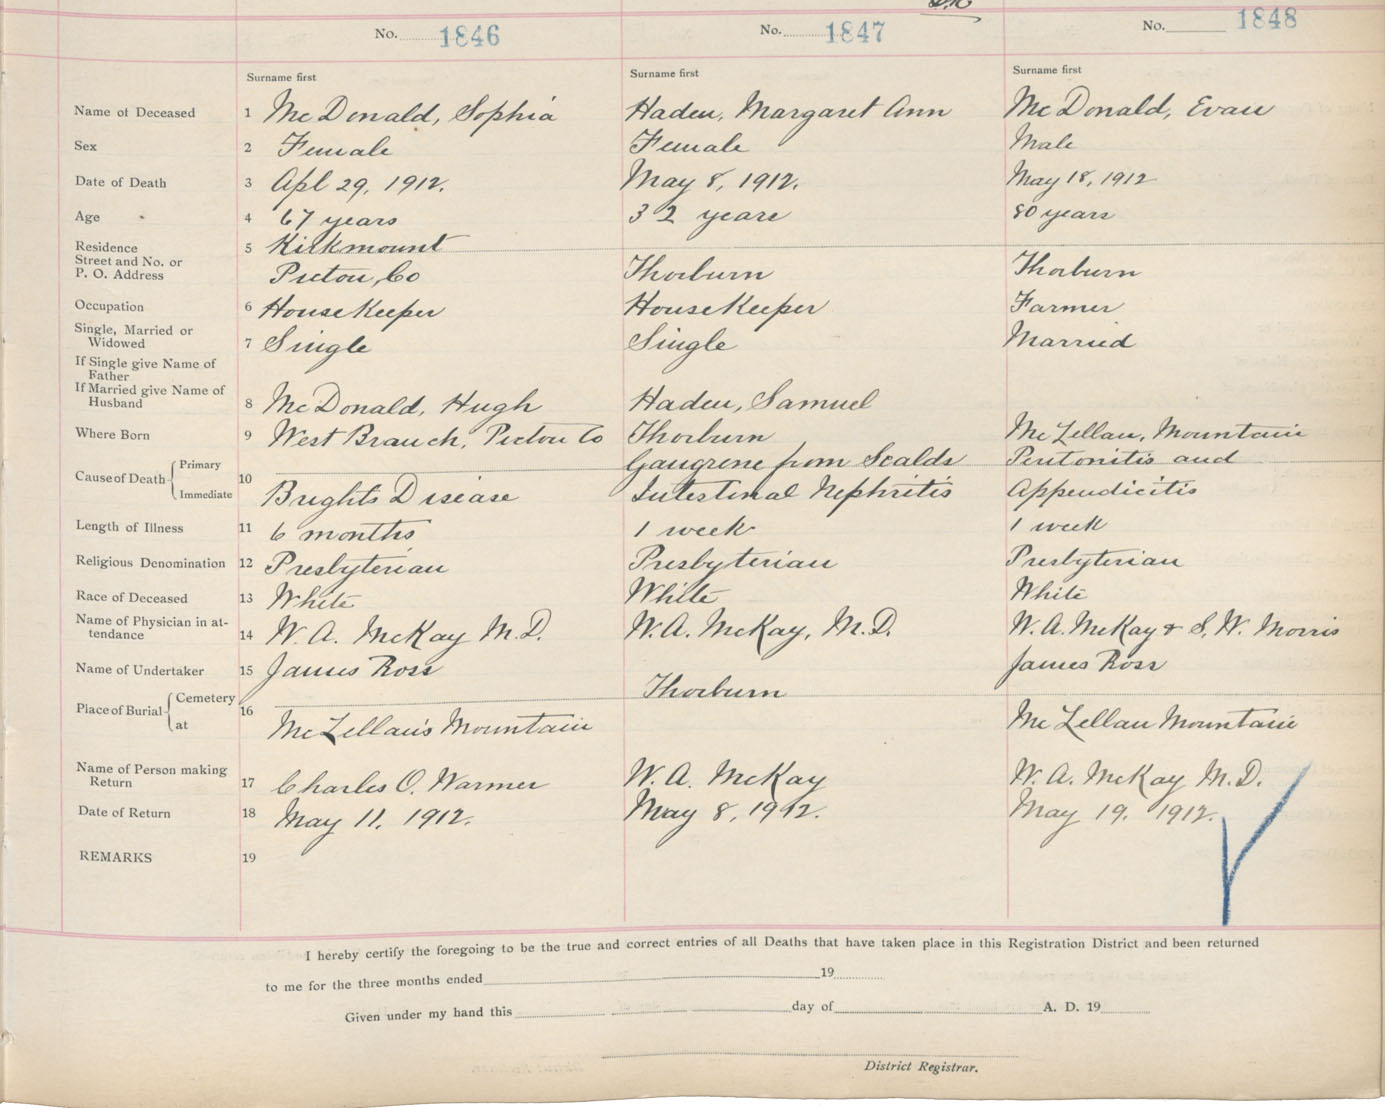 No. 1846 No. 1847 No. 1848
Surname first Surname first Surname first
Name of Deceased 1 McDonald, Sophia Haden, Margaret Ann McDonald, Evan
Sex 2 Female Female Male
Date of Death 3 Apl 29, 1912. May 8, 1912. May 18, 1912
Age 4 67 years 32 years 80 years
Residence 5 Kirkmount
Street and No. or
P. O. Address Pictou, Co Thorburn Thorburn
Occupation 6 HouseKeeper HouseKeeper Farmer
Single, Married or
Widowed 7 Single Single Married
If Single give Name of
Father
If Married give Name of
Husband 8 McDonald, Hugh Haden, Samuel
Where Born 9 West Branch, Pictou Co Thorburn McLellan, Mountain
Cause of Death Primary 10 Gangrene from Scalds Peritonitis and
Immediate Brights Disease Intestinal Nephritis Appendicitis
Length of Illness 11 6 months 1 week 1 week
Religious Denomination 12 Presbyterian Presbyterian Presbyterian
Race of Deceased 13 White White White
Name of Physician in at-
tendance 14 W. A. McKay M.D. W. A. McKay, M.D. W. A. McKay & S. W. Morris
Name of Undertaker 15 James Ross James Ross
Place of Burial Cemetery 16 Thorburn
at McLellan's Mountain McLellan Mountain
Name of Person making
Return 17 Charles O. Warmer W. A. McKay W. A. McKay M.D.
Date of Return 18 May 11, 1912. May 8, 1912. May 19, 1912.
REMARKS 19
I hereby certify the foregoing to be the true and correct entries of all Deaths that have taken place in this Registration District and been returned
to me for the three months ended 19
Given under my hand this day of A. D. 19
District Registrar.